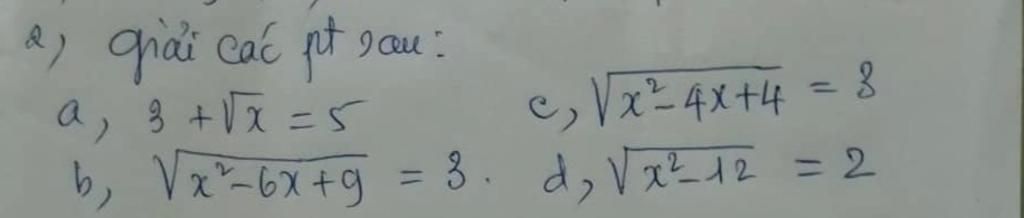 2, Giải các pt sau:
a, 3 + √x = 5
c, √x² - 4x + 4 = 3
b, √x² - 6x + 9 = 3.
d, √x² - 12 = 2